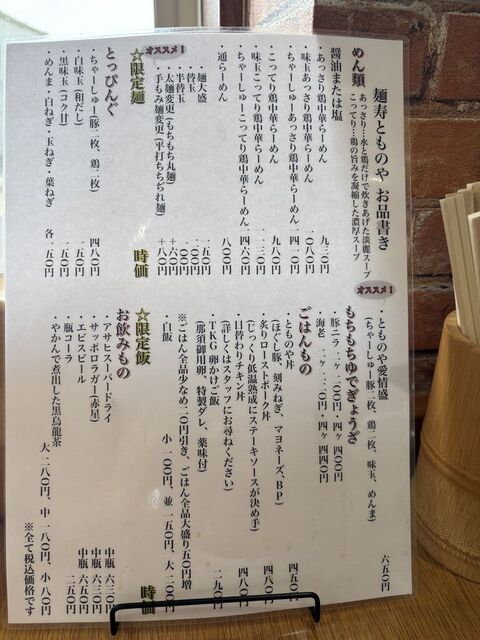 麺寿とものや お品書き
めん類
あっさり…水と鶏だけで炊きあげた淡麗スープ
こってり…鶏の旨みを凝縮した濃厚スープ
醤油または塩
・あっさり鶏中華らーめん 九三〇円
・味玉あっさり鶏中華らーめん 一、〇八〇円
・ちゃーしゅーあっさり鶏中華らーめん 一、四一〇円
・こってり鶏中華らーめん 九八〇円
・味玉こってり鶏中華らーめん 一、一三〇円
・ちゃーしゅーこってり鶏中華らーめん 一、四六〇円
・通らーめん 八〇〇円
・麺大盛 一五〇円
・替玉 二〇〇円
・半替玉 一〇〇円
・太麺変更(もちもち丸麺) +六〇円
・手もみ麺変更(平打ちちぢれ麺) +八〇円
オススメ!
☆限定麺 時価
とっぴんぐ
・ちゃーしゅー(豚二枚、鶏二枚) 四八〇円
・白味玉(和だし) 一五〇円
・黒味玉(コク甘) 一五〇円
・めんま・白ねぎ・玉ねぎ・葉ねぎ 各一五〇円
オススメ!
・とものや愛情盛 六五〇円
(ちゃーしゅー豚二枚、鶏二枚、味玉、めんま)
もちもちゆでぎょうざ
・豚ニラ 二ヶ二〇〇円・四ヶ四〇〇円
・海老 二ヶ二二〇円・四ヶ四四〇円
ごはんもの
・とものや丼 四五〇円
(ほぐし豚、刻みねぎ、マヨネーズ、BP)
・炙りローストポーク丼 四八〇円
(じっくり低温熟成にステーキソースが決め手)
・日替わりチキン丼 四八〇円
(詳しくはスタッフにお尋ねください)
・TKG 卵かけご飯 二九〇円
(那須御用卵、特製ダレ、薬味付)
※ごはん全品少なめ二〇円引き、ごはん全品大盛り五〇円増
・白飯 小一〇〇円、並一五〇円、大二〇〇円
☆限定飯 時価
お飲みもの
・アサヒスーパードライ 中瓶六三〇円
・サッポロラガー(赤星) 中瓶六三〇円
・エビスビール 中瓶六五〇円
・瓶コーラ 二五〇円
・やかんで煮出した黒烏龍茶 大二八〇円、中一八〇円、小八〇円
※全て税込価格です